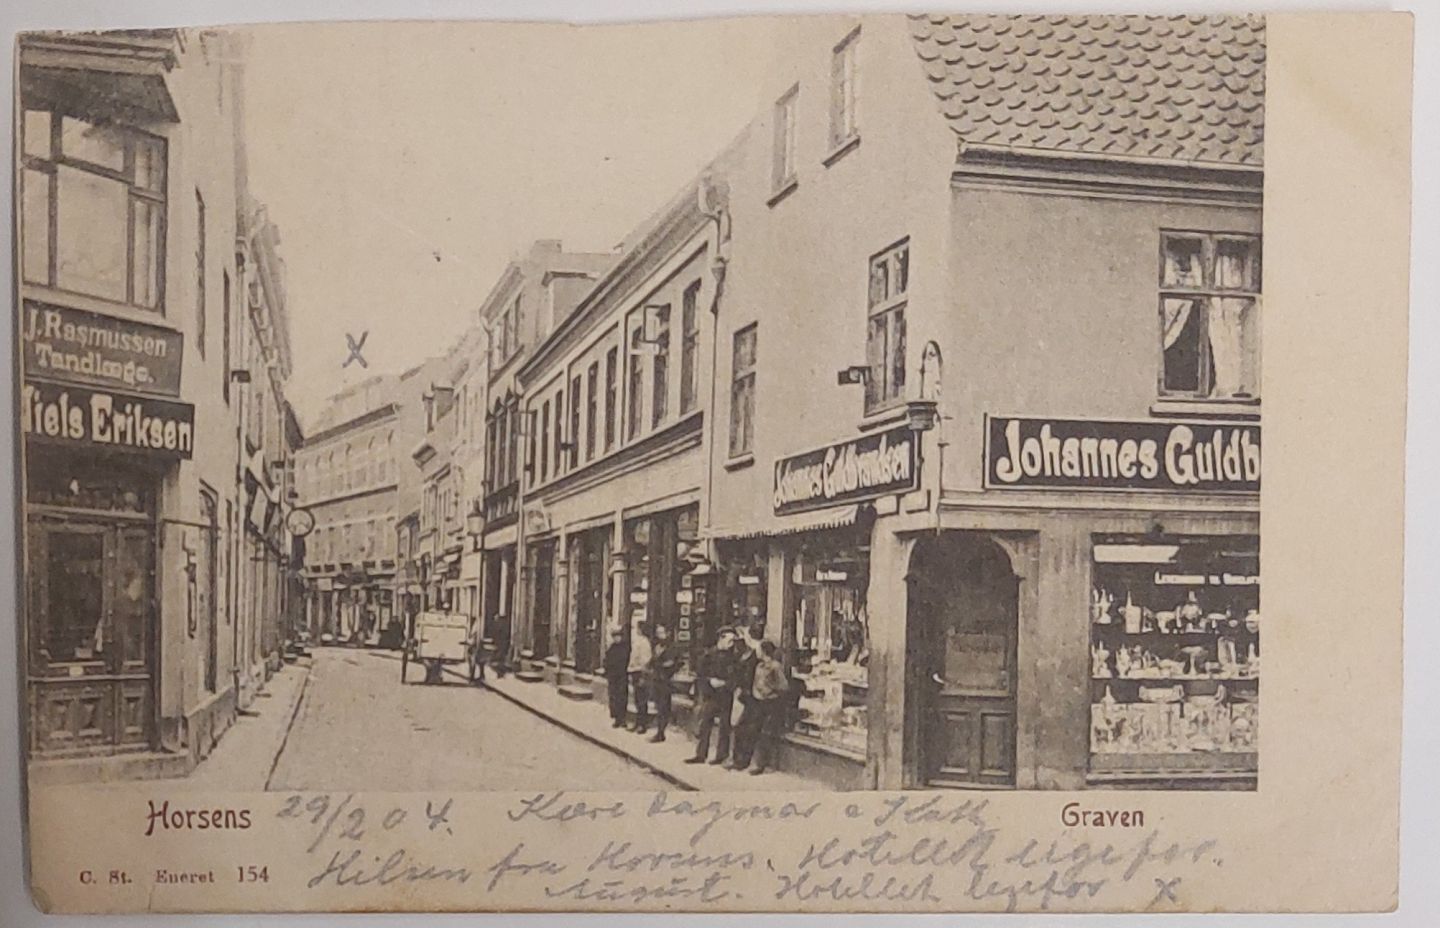 J. Rasmussen
Tandlæge.
Niels Eriksen
Johannes Guldbrandsen
Johannes Guldb
X
Horsens
29/2 04.
Kære Dagmar
Graven
Hilsen fra Horsens. Hotellet ligefor.
August. Hotellet ligefor X
C. St. Eneret 154